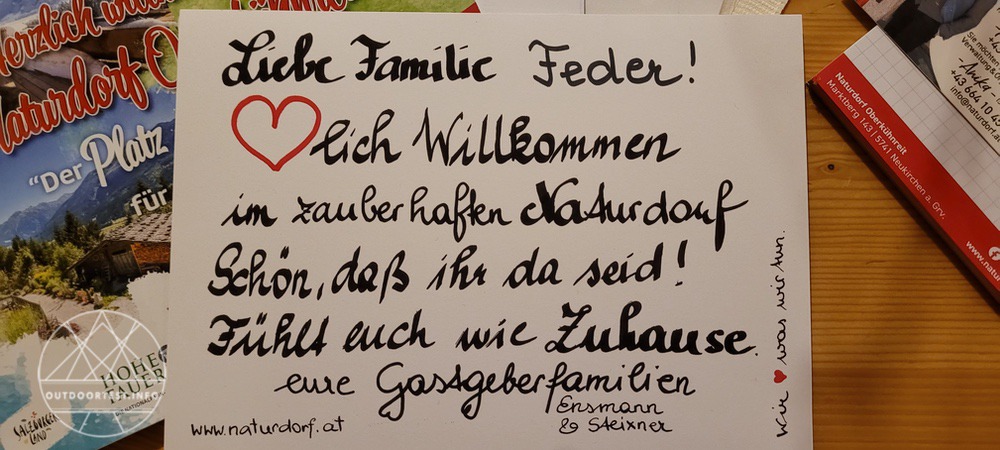 Liebe Familie Feder!
❤lich Willkommen
im zauberhaften Naturdorf
Schön, daß ihr da seid!
Fühlt euch wie Zuhause.
eure Gastgeberfamilien
Ensmann
& Steixner
www.naturdorf.at
Wir ❤ was wir tun.
Herzlich
Naturdorf O
"Der Platz
für
HOHE
TAUER
SALZBURGER
LAND
OUTDOORTEST.INFO
Sie möchten
Verwaltung &
-Anika-
+43 664 10 45
info@naturdorf.at
Naturdorf Oberkühnreit
Marktberg 143 | 5741 Neukirchen a. Grv.
www.natur